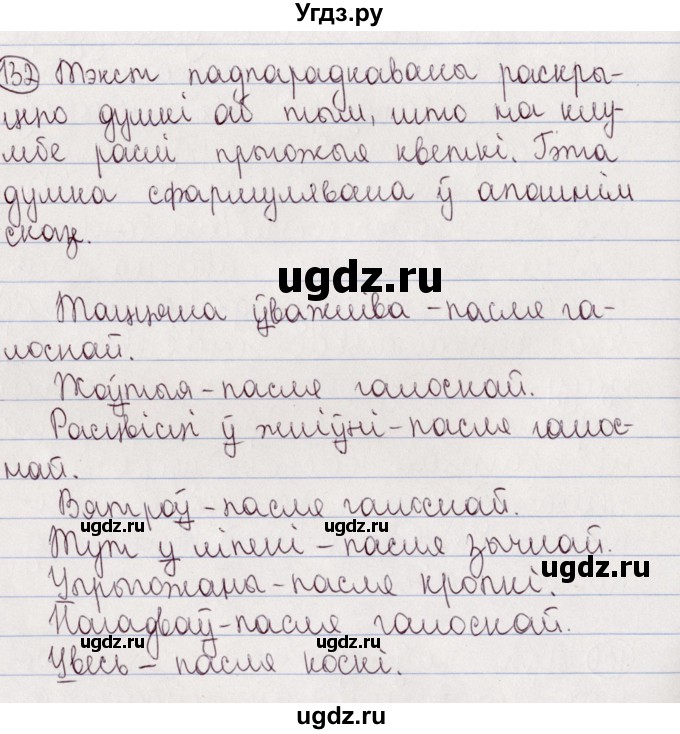 Угдз.ру
132 Тэкст падпарадкаваны раскры-
ццю думкі аб тым, што на клу-
мбе раслі прыгожыя кветкі. Гэта
думка сфармулявана ў апошнім
сказе.
ugdz.ru
Таццяна ўважліва - пасля га-
лоснай.
Жоўтыя - пасля галоснай.
Расцвіслі ў жніўні - пасля галос-
най.
Вятроў - пасля галоснай.
ugdz.ru ugdz.ru
Тут у ліпені - пасля зычнай.
ugdz.ru
Упрыгожаны - пасля кропкі.
Паладваў - пасля галоснай.
ugdz.ru ugdz.ru
Увесь - пасля коскі.
ugdz.ru